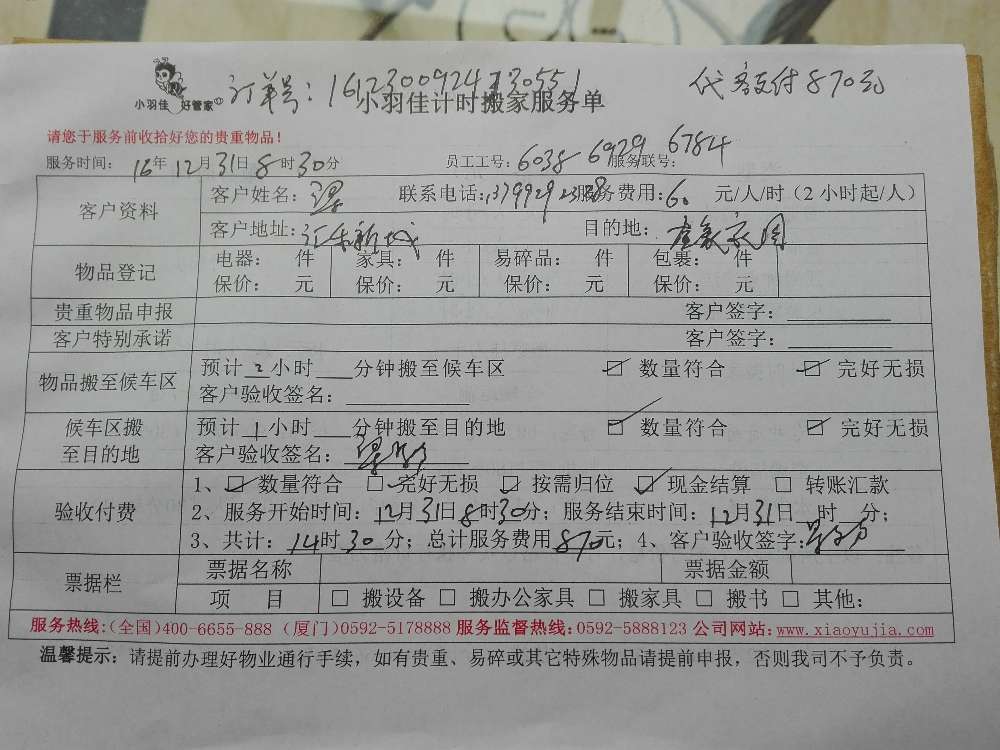 订单号：161230092413055 1
代客支付870元
小羽佳 好管家
小羽佳计时搬家服务单
请您于服务前收拾好您的贵重物品！
服务时间：16年12月31日8时30分 员工工号：6038 6929 服务联号： 6784
客户资料
客户姓名： 联系电话： 服务费用：60 元/人/时（2小时起/人）
客户地址：汇乐新城 目的地：
物品登记
电器： 件 家具： 件 易碎品： 件 包裹： 件
保价： 元 保价： 元 保价： 元 保价： 元
贵重物品申报 客户签字：
客户特别承诺 客户签字：
物品搬至候车区
预计2小时 分钟搬至候车区 ☑ 数量符合 ☑ 完好无损
客户验收签名：
候车区搬至目的地
预计1小时 分钟搬至目的地 ☑ 数量符合 ☑ 完好无损
客户验收签名：
验收付费
1、☑ 数量符合 ☑ 完好无损 ☑ 按需归位 ☑ 现金结算 □ 转账汇款
2、服务开始时间：12月31日8时30分；服务结束时间：12月31日 时 分；
3、共计：14时30分；总计服务费用870元；4、客户验收签字：
票据栏
票据名称 票据金额
项 目 □ 搬设备 □ 搬办公家具 □ 搬家具 □ 搬书 □ 其他：
服务热线：(全国)400-6655-888 (厦门)0592-5178888 服务监督热线：0592-5888123 公司网站：www.xiaoyujia.com
温馨提示：请提前办理好物业通行手续，如有贵重、易碎或其它特殊物品请提前申报，否则我司不予负责。